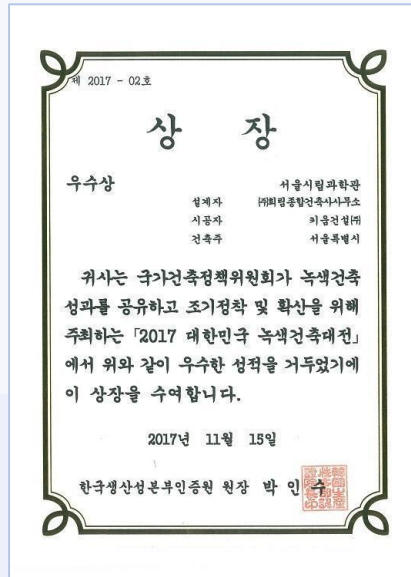 제 2017 - 02호
상 장
우수상 서울시립과학관
설계자 (주)희림종합건축사사무소
시공자 키움건설(주)
건축주 서울특별시
귀사는 국가건축정책위원회가 녹색건축
성과를 공유하고 조기정착 및 확산을 위해
주최하는 「2017 대한민국 녹색건축대전」
에서 위와 같이 우수한 성적을 거두었기에
이 상장을 수여합니다.
2017년 11월 15일
한국생산성본부인증원 원장 박 인 수